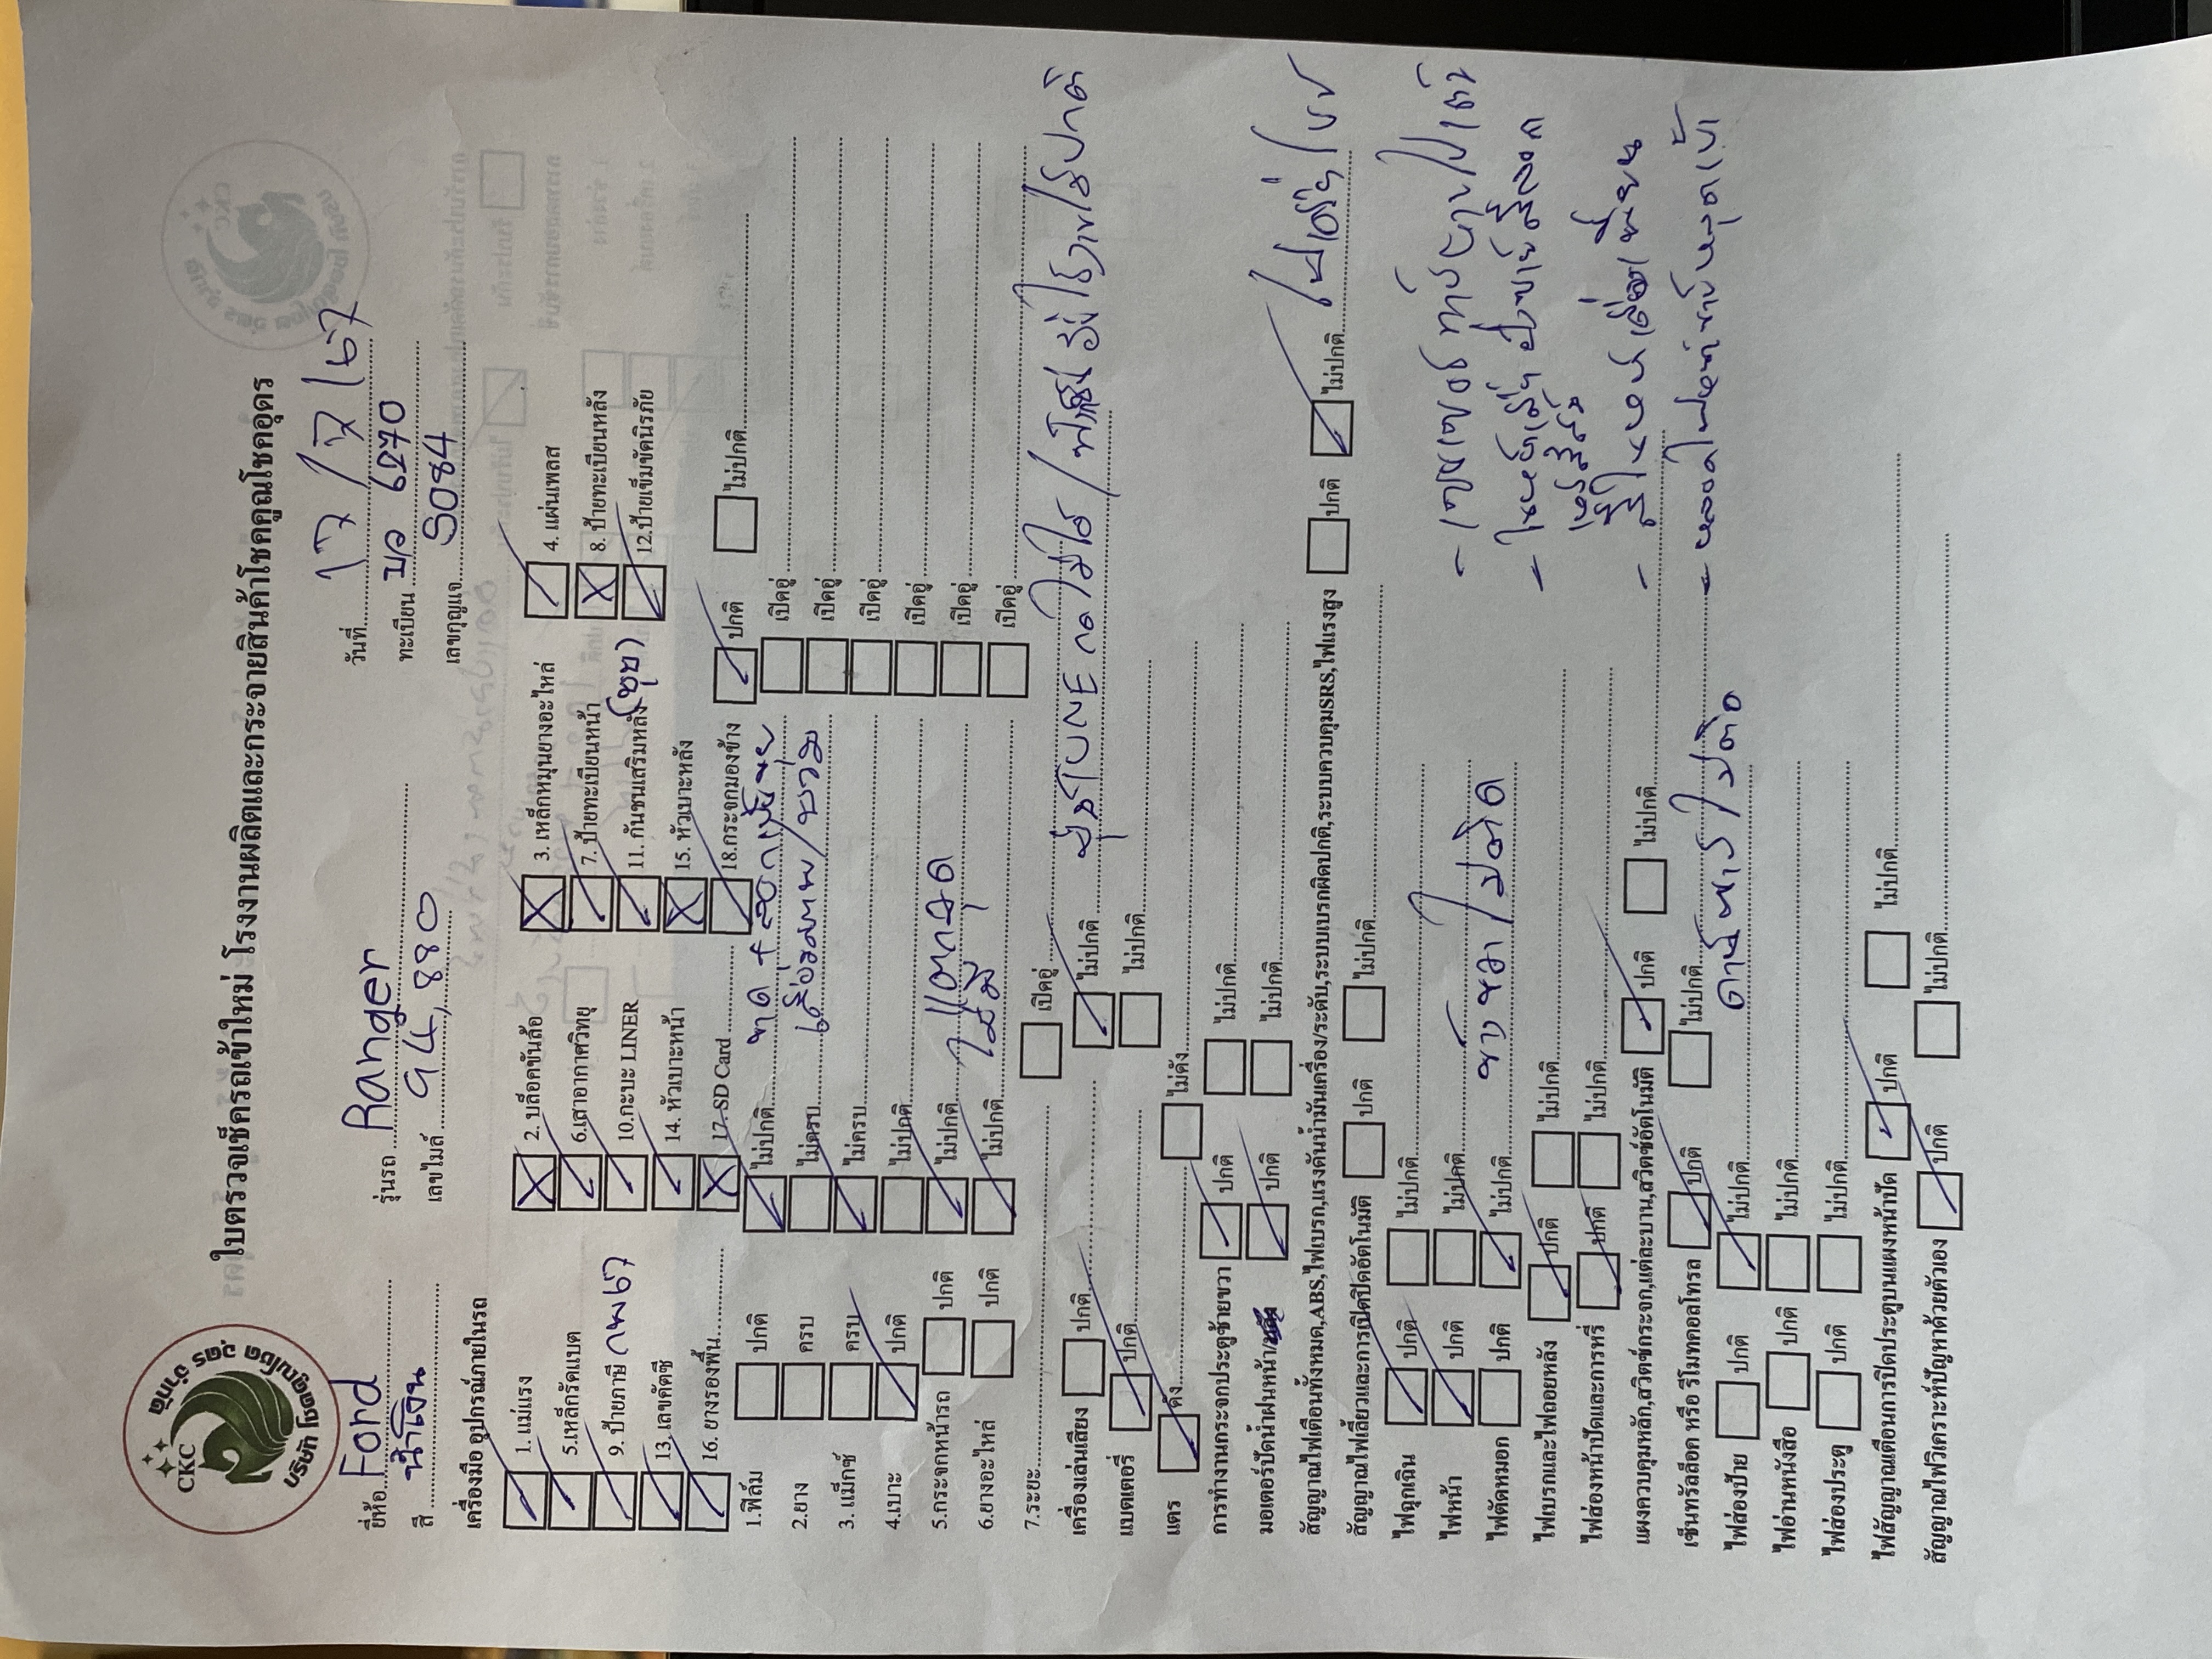 CKC
บริษัท โชคคูณโชค อุดร จำกัด
ใบตรวจเช็ครถเข้าใหม่ โรงงานผลิตและกระจายสินค้าโชคคูณโชคอุดร
วันที่ 17 / 7 / 67
ยี่ห้อ Ford รุ่นรถ Ranger ทะเบียน บอ 6270
สี น้ำเงิน เลขไมล์ 94,880 เลขกุญแจ S084
เครื่องมือ อุปกรณ์ภายในรถ
1. แม่แรง 2. บล็อคขันล้อ 3. เหล็กหมุนยางอะไหล่ 4. แผ่นเพลส
5.เหล็กกรัดแบต 6.เสาอากาศวิทยุ 7. ป้ายทะเบียนหน้า 8. ป้ายทะเบียนหลัง
9. ป้ายภาษี กพ67 10.กะบะ LINER 11. กันชนเสริมหลัง 12.ป้ายเข็มขัดนิรภัย
13. เลขคัตซี 14. หัวเบาะหน้า 15. หัวเบาะหลัง
16. ยางรองพื้น 17. SD Card 18.กระจกมองข้าง
1.ฟิล์ม ปกติ ไม่ปกติ ปกติ ไม่ปกติ
2.ยาง ครบ ไม่ครบ เสื่อมสภาพ/บวม เปิดอู่
3. แม็กซ์ ครบ ไม่ครบ เปิดอู่
4.เบาะ ปกติ ไม่ปกติ เปิดอู่
5.กระจกหน้ารถ ปกติ ไม่ปกติ แตก จุด เปิดอู่
6.ยางอะไหล่ ปกติ ไม่ปกติ ไม่มี เปิดอู่
7.ระยะ เปิดอู่ เปิดอู่
เครื่องเล่นเสียง ปกติ ไม่ปกติ กดไม่ได้
แบตเตอรี่ ปกติ ไม่ปกติ
แตร ดัง ไม่ดัง
การทำงานกระจกประตูซ้ายขวา ปกติ ไม่ปกติ
มอเตอร์ปัดน้ำฝนหน้า ปกติ ไม่ปกติ
สัญญาณไฟเตือนทั้งหมด,ABS,ไฟเบรก,แรงดันน้ำมันเครื่อง/ระดับ,ระบบเบรกผิดปกติ,ระบบควบคุมSRS,ไฟแรงสูง ปกติ ไม่ปกติ
สัญญาณไฟเลี้ยวและการเปิดปิดอัตโนมัติ ปกติ ไม่ปกติ
ไฟฉุกเฉิน ปกติ ไม่ปกติ
ไฟหน้า ปกติ ไม่ปกติ
ไฟตัดหมอก ปกติ ไม่ปกติ ข้างขวาไม่ติด
ไฟเบรกและไฟถอยหลัง ปกติ ไม่ปกติ
ไฟส่องหน้าปัดและการหรี่ ปกติ ไม่ปกติ
แผงควบคุมหลัก,สวิตช์กระจก,แต่ละบาน,สวิตช์อัตโนมัติ ปกติ ไม่ปกติ
เซ็นทรัลล็อค หรือ รีโมทคอลโทรล ปกติ ไม่ปกติ
ไฟส่องป้าย ปกติ ไม่ปกติ ไม่ติด
ไฟอ่านหนังสือ ปกติ ไม่ปกติ
ไฟส่องประตู ปกติ ไม่ปกติ
ไฟสัญญาณเตือนการปิดประตูบนแผงหน้าปัด ปกติ ไม่ปกติ
สัญญาณไฟวิเคราะห์ปัญหาด้วยตัวเอง ปกติ ไม่ปกติ